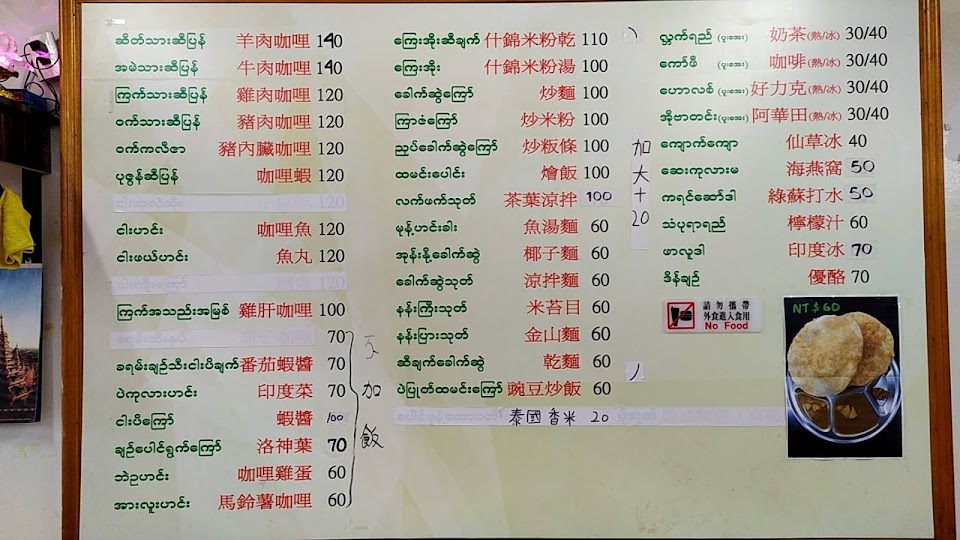 ဆိတ်သားဆီပြန် 羊肉咖哩 140
အမဲသားဆီပြန် 牛肉咖哩 140
ကြက်သားဆီပြန် 雞肉咖哩 120
ဝက်သားဆီပြန် 豬肉咖哩 120
ဝက်ကလီစာ 豬內臟咖哩 120
ပုဇွန်ဆီပြန် 咖哩蝦 120
120
ငါးဟင်း 咖哩魚 120
ငါးဖယ်ဟင်း 魚丸 120
120
ကြက်အသည်းအမြစ် 雞肝咖哩 100
70
ခရမ်းချဉ်သီးငါးပိချက် 番茄蝦醬 70
ပဲကုလားဟင်း 印度菜 70
ငါးပိကြော် 蝦醬 100
ချဉ်ပေါင်ရွက်ကြော် 洛神葉 70
ဘဲဥဟင်း 咖哩雞蛋 60
အားလူးဟင်း 馬鈴薯咖哩 60
加飯
ကြေးအိုးဆီချက် 什錦米粉乾 110
ကြေးအိုး 什錦米粉湯 100
ခေါက်ဆွဲကြော် 炒麵 100
ကြာဇံကြော် 炒米粉 100
ညှပ်ခေါက်ဆွဲကြော် 炒粄條 100
ထမင်းပေါင်း 燴飯 100
လက်ဖက်သုတ် 茶葉涼拌 100
မုန့်ဟင်းခါး 魚湯麵 60
အုန်းနို့ခေါက်ဆွဲ 椰子麵 60
ခေါက်ဆွဲသုတ် 涼拌麵 60
နန်းကြီးသုတ် 米苔目 60
နန်းပြားသုတ် 金山麵 60
ဆီချက်ခေါက်ဆွဲ 乾麵 60
ပဲပြုတ်ထမင်းကြော် 豌豆炒飯 60
泰國香米 20
加大+20
လ္ဘက်ရည် (ပူ၊အေး) 奶茶(熱/冰) 30/40
ကော်ဖီ (ပူ၊အေး) 咖啡(熱/冰) 30/40
ဟောလစ် (ပူ၊အေး) 好力克(熱/冰) 30/40
အိုဗာတင်း (ပူ၊အေး) 阿華田(熱/冰) 30/40
ကျောက်ကျော 仙草冰 40
ဆေးကုလားမ 海燕窩 50
ကရင်ဆော်ဒါ 綠蘇打水 50
သံပုရာရည် 檸檬汁 60
ဖာလူဒါ 印度冰 70
ဒိန်ချဉ် 優酪 70
請勿攜帶
外食進入食用
No Food
NT$60